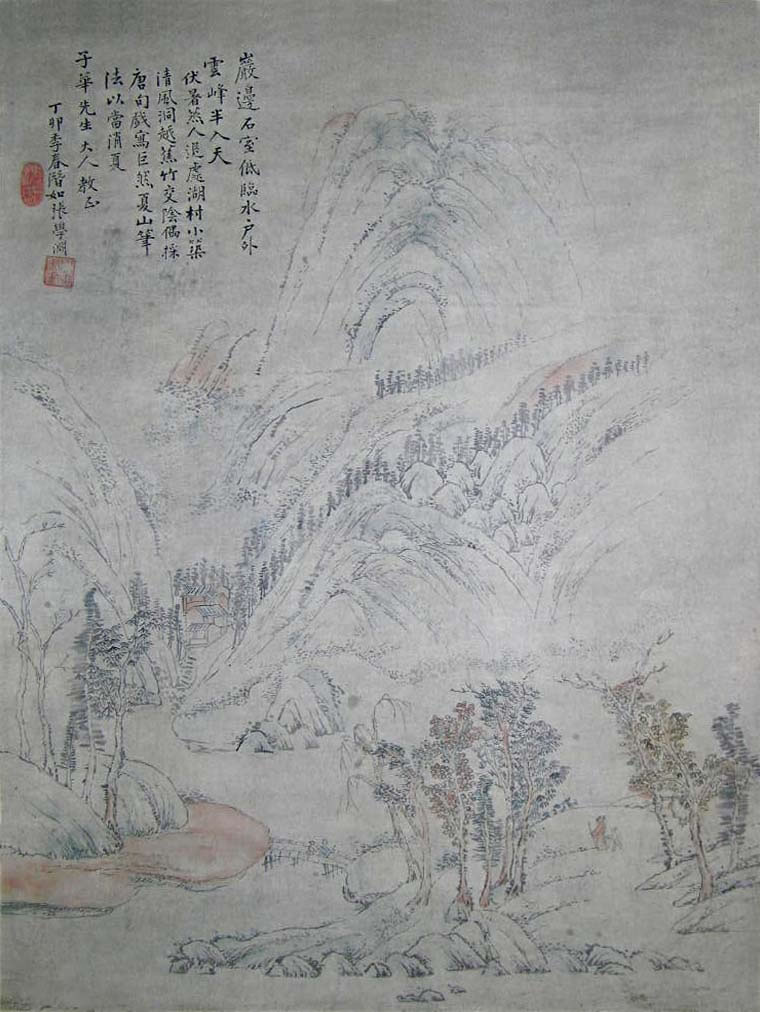 巖邊石室低臨水戶外
雲峰半入天
伏暑蒸人退處湖村小築
清風洞越蕉竹交陰偶採
唐句戲寫巨然夏山筆
法以當消夏
子華先生大人教正
丁卯季春階如張學淵